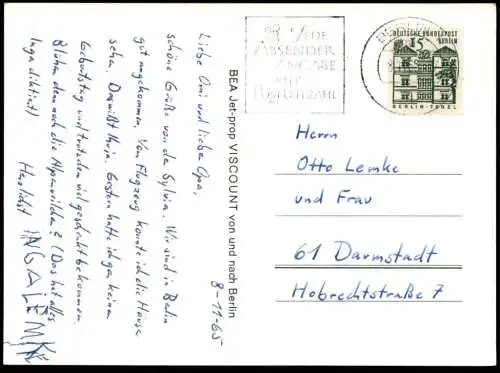 8-11-65
Liebe Omi und lieber Opa,
schöne Grüße von der Sylvia. Wir sind in Berlin
gut angekommen. Vom Flugzeug konnte ich die Häuser
sehen. Gestern hatte ich gar keinen
Geburtstag und trotzdem viel geschenkt bekommen.
Blühen denn noch die Alpenveilchen? (Das hat alles
Inga diktiert)
Herzlichst
INGA LEMKE
BEA Jet-prop VISCOUNT von und nach Berlin
JEDE
ABSENDER
ANGABE
MIT
POSTLEITZAHL
DEUTSCHE BUNDESPOST
BERLIN
15
BERLIN-TEGEL
Herrn
Otto Lemke
und Frau
61 Darmstadt
Hobrechtstraße 7